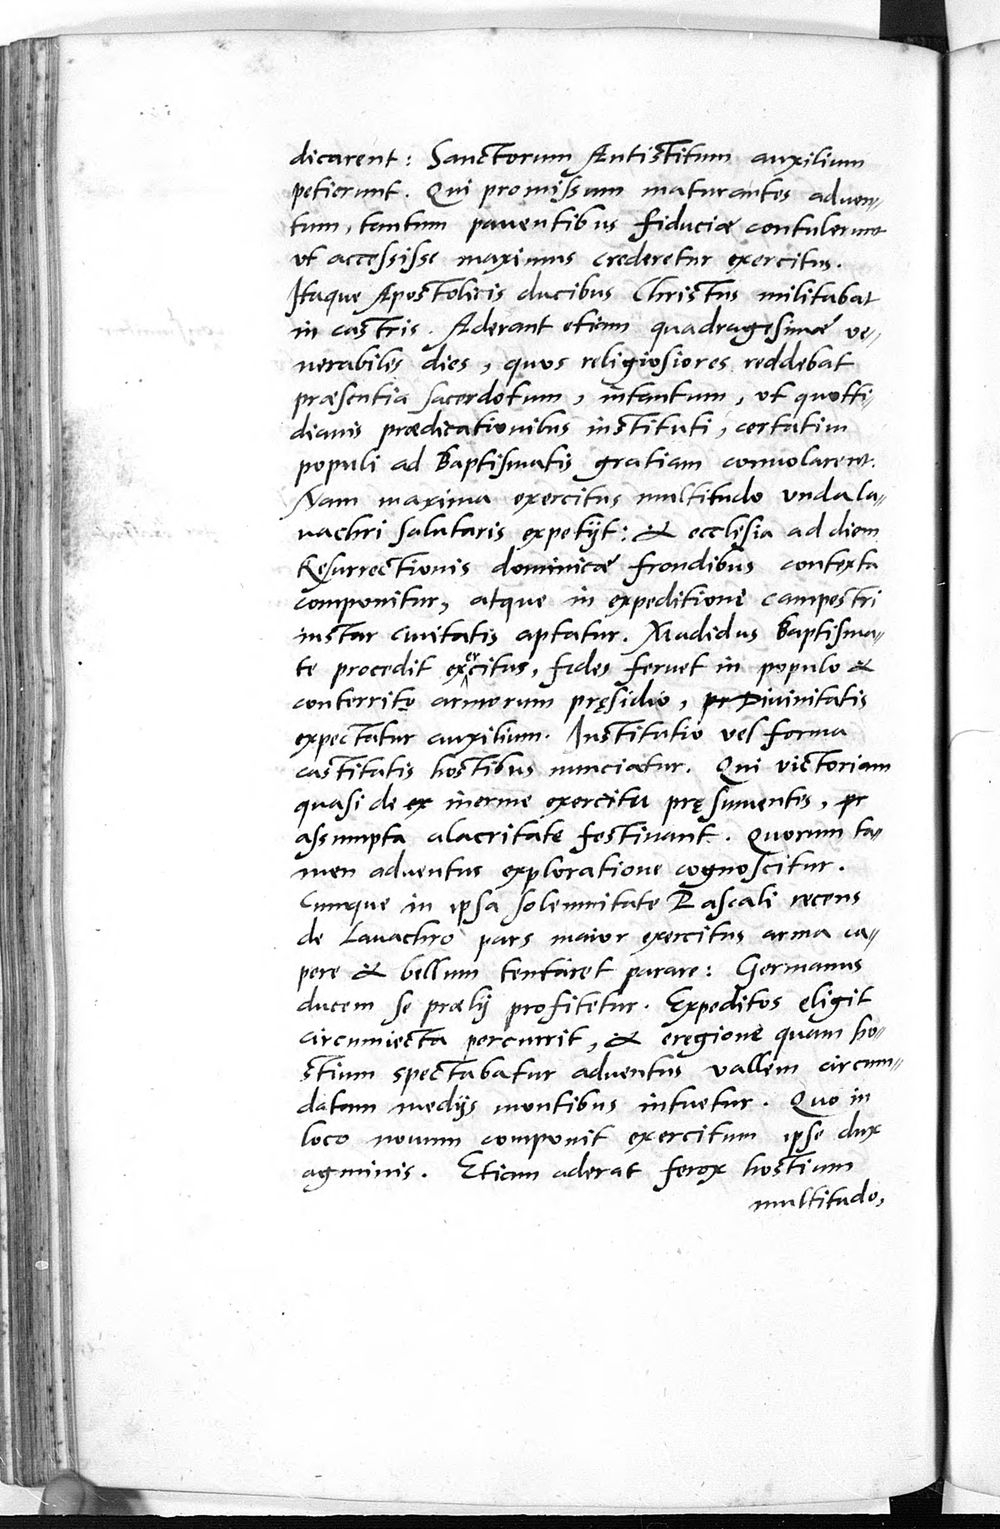 dicarent: Sanctorum Antistitum auxilium
petierunt. Qui promissum maturantes aduen=
tum, tantum pauentibus fiduciæ contulerunt
vt accessisse maximus crederetur exercitus.
Itaque Apostolicis ducibus Christus militabat
in castris. Aderant etiam quadragesimæ ve=
nerabiles dies, quos religiosiores reddebat
præsentia sacerdotum, intantum, vt quotti=
dianis prædicationibus instituti, certatim
populi ad Baptismatis gratiam conuolarent.
Nam maxima exercitus multitudo vnda la=
uachri salutaris expetijt: & ecclesia ad diem
Resurrectionis dominicæ frondibus contexta
componitur, atque in expeditione campestri
instar ciuitatis aptatur. Madidus Baptisma=
te procedit exercitus, fides feruet in populo &
conterrito armorum pręsidio, pr Diuinitatis
expectatur auxilium. Institutio vel forma
castitatis hostibus nunciatur. Qui victoriam
quasi de ex inerme exercitu pręsumentis, pr
assumpta alacritate festinant. Quorum ta=
men aduentus exploratione cognoscitur.
Cumque in ipsa solemnitate Pascali recens
de Lauachro pars maior exercitus arma ca=
pere & bellum tentaret parare: Germanus
ducem se prælij profitetur. Expeditos eligit
circumiecta percurrit, & eregione quam ho=
stium spectabatur aduentus vallem circum=
datam medijs montibus intuetur. Quo in
loco nouum componit exercitum ipse dux
agminis. Etiam aderat ferox hostium
multitudo,